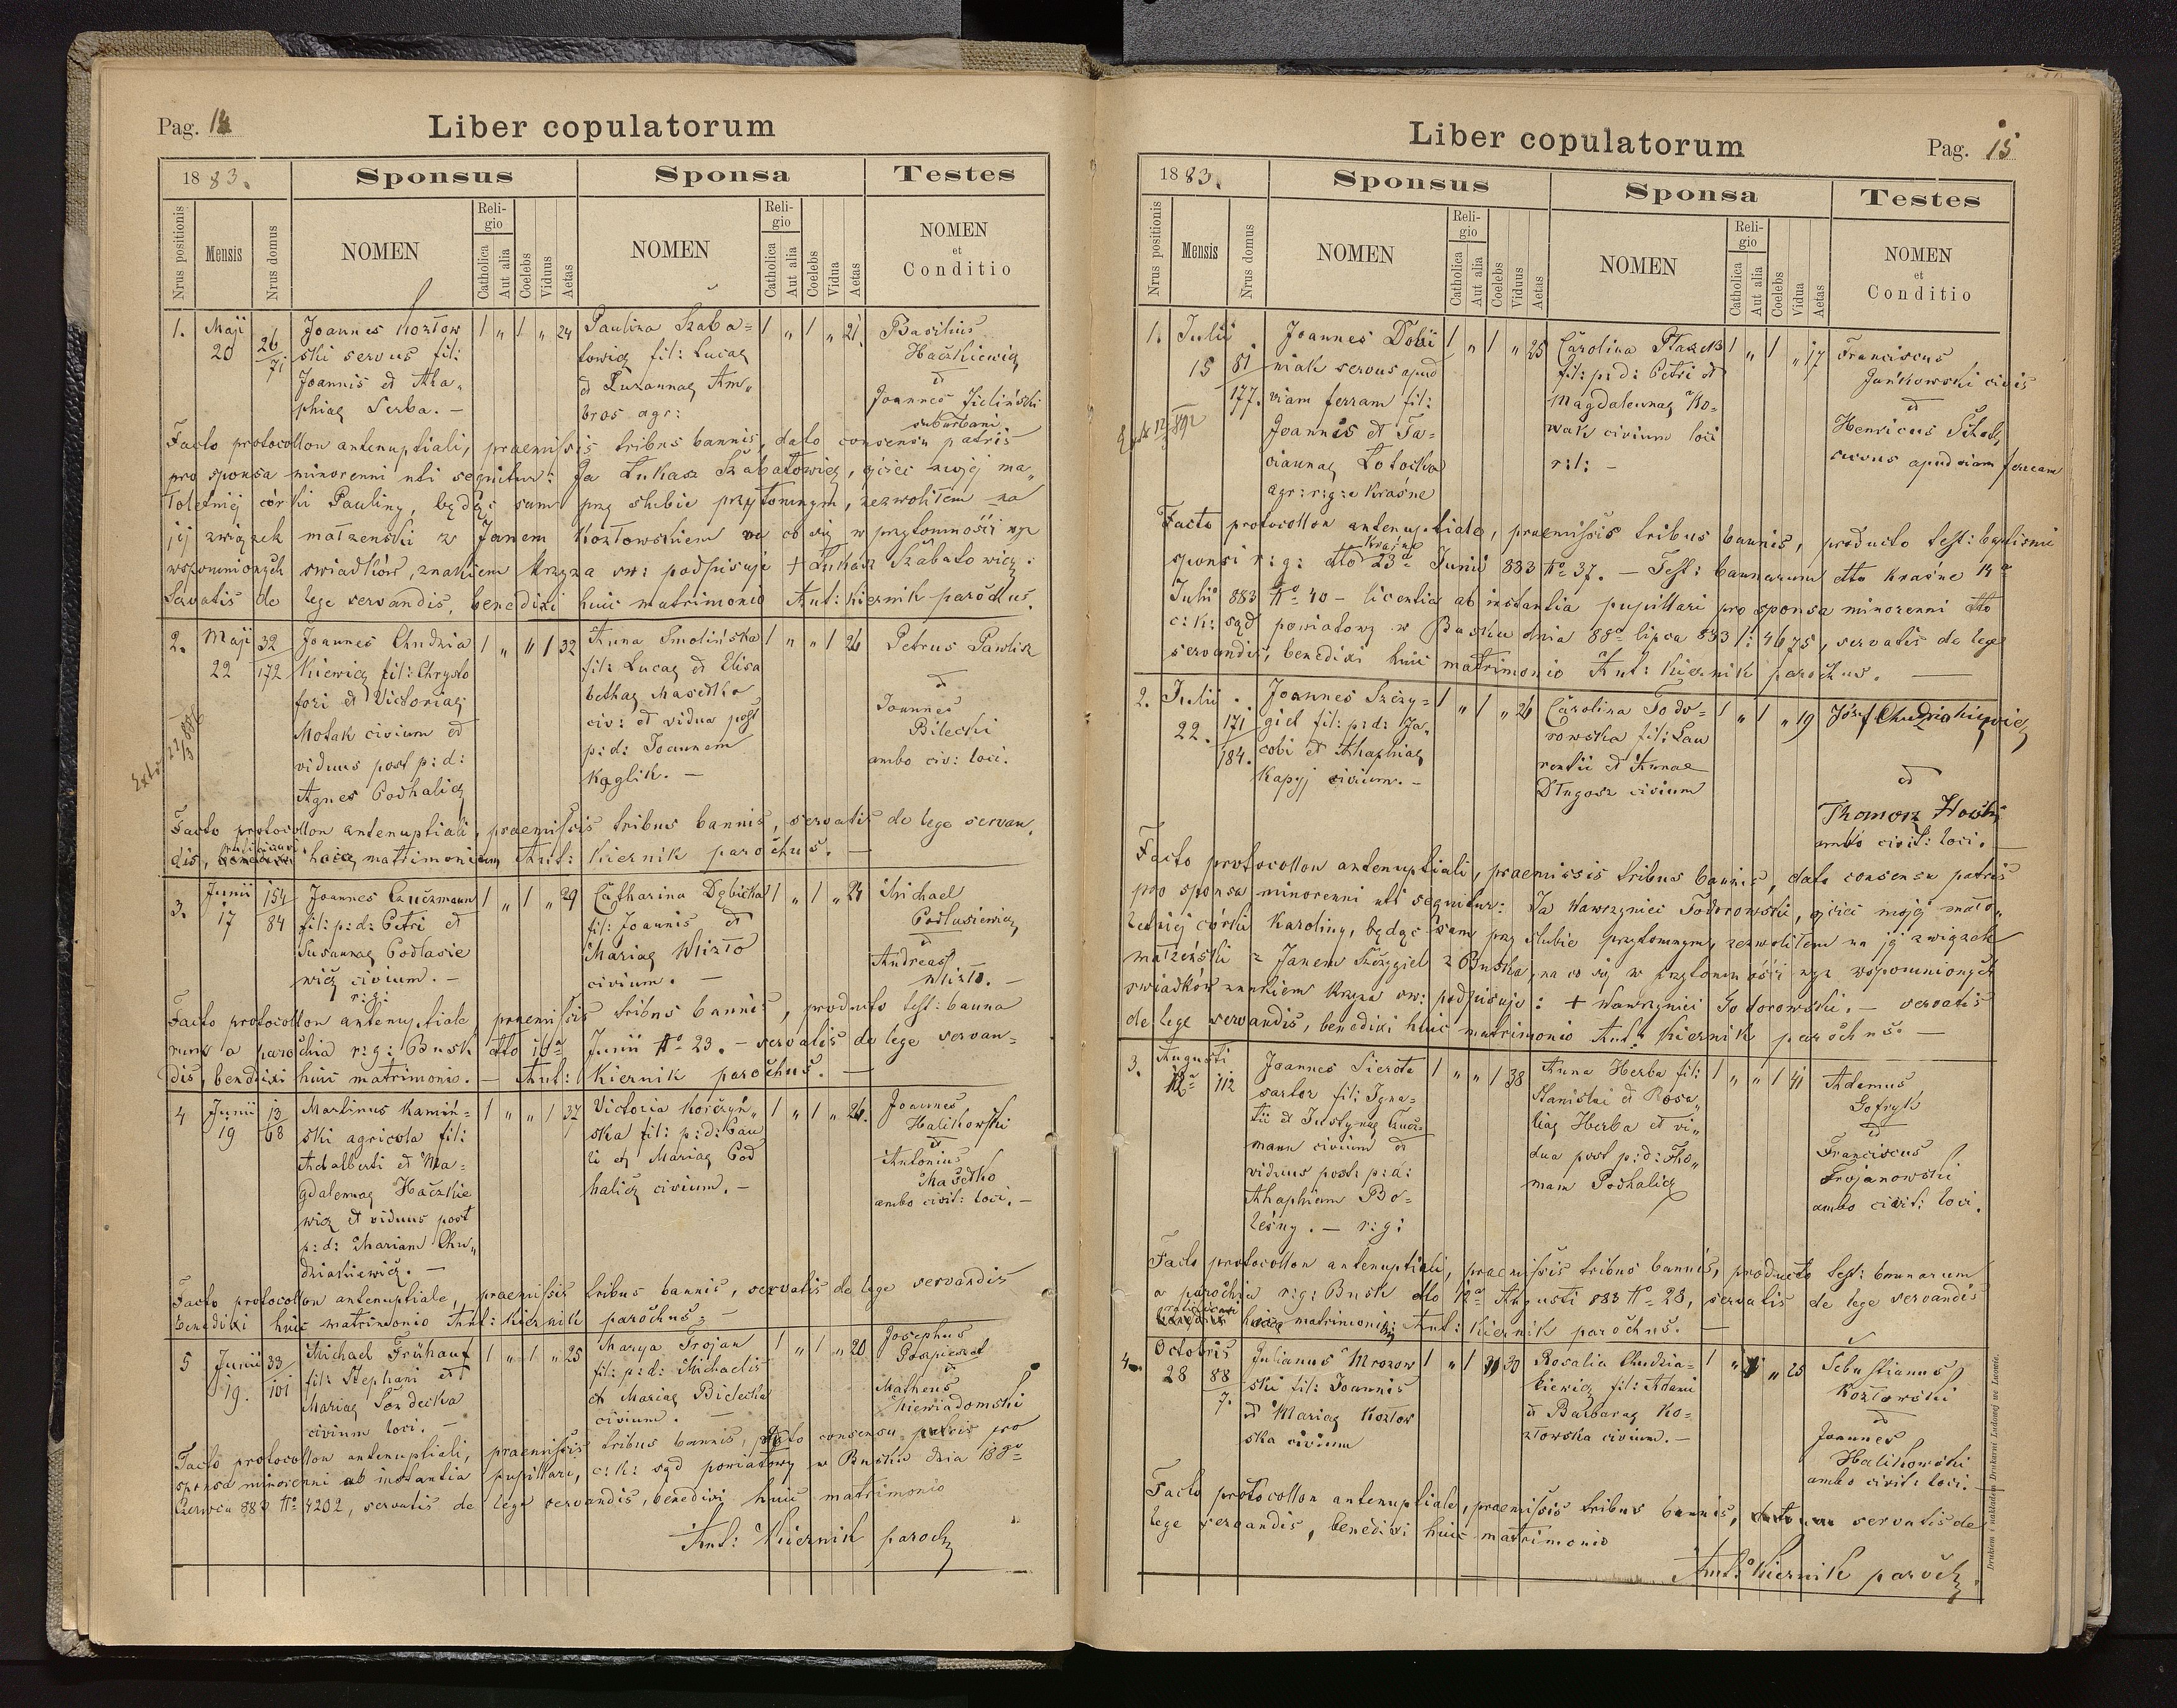 Pag. 14
Liber copulatorum
1883.
Sponsus
Sponsa
Testes
Nrus positionis
Mensis
Nrus domus
NOMEN
Religio
Catholica
Aut alia
Coelebs
Viduus
Aetas
NOMEN
Religio
Catholica
Aut alia
Coelebs
Vidua
Aetas
NOMEN
et
Conditio
1. Maji 20 26/71
Joannes Kozłow
ski servus fil:
Joannis et Aha„
phiae Serba. –
1 „ 1 „ 24
Paulina Szaba=
towicz fil: Lucae
et Zuzannae Am„
bros agr:
1 „ 1 „ 21.
Basilius
Haczkiewicz
et
Joannes Zieliński
suburbani
Facto protocollon antenuptiali, praemissis tribus bannis, dato consensu patris
pro sponsa minorenni uti sequitur: Ja Łukasz Szabatowicz, ojciec mojej ma„
łoletniej córki Pauliny, będąc sam przy ślubie przytomnym, zezwoliłem na
jej związek małżeński z Janem Kozłowskiem na co się w przytomności wyż
wspomnionych świadków, znakiem krzyża św: podpisuję + Łukasz Szabatowicz.
Servatis de lege servandis, benedixi huic matrimonio Ant: Kiernik parochus.
2. Maji 22 32/172
Joannes Chudzia
kiewicz fil: Chrysto
fori et Victoriae
Motak civium et
viduus post p: d:
Agnes Podhalicz
1 „ „ 1 32
Anna Smolińska
fil: Lucae et Elisa
bethae Masedtko
civ: et vidua post
p: d: Joannem
Kaglik. –
1 „ „ 1 26
Petrus Pawlik
et
Joannes
Bilecki
ambo civ: loci.
Facto protocollon antenuptiali, praemissis tribus bannis, servatis de lege servan„
dis, matrimonium Ant: Kiernik parochus. –
3. Junii 17 154/84
Joannes Czuczmann
fil: p: d: Petri et
Susannae Podłasie
wicz civium. –
r: g:
1 „ 1 „ 29
Catharina Dębicka
fil: Joannis et
Mariae Wlizło
civium. –
1 „ 1 „ 24
Michael
Podłasiewicz
et
Andreas
Wlizło. –
Facto protocollon antenuptiale praemissis tribus bannis, producto test: banna
rum a parochia r: g: Busk dto 16a Junii No 23. – servatis de lege servan=
dis, benedixi huic matrimonio. – Ant: Kiernik parochus. –
4 Junii 19 13/68
Martinus Kamiń=
ski agricola fil:
Adalberti et Ma=
gdalenae Haczkie
wicz et viduus post
p: d: Mariam Chu„
dziakiewicz. –
1 „ „ 1 37
Victoria Korczyń„
ska fil: p: d: Pau
li et Mariae Pod
halicz civium. –
1 „ 1 „ 26.
Joannes
Halikowski
et
Antonius
Masetko
ambo civit: loci. –
Facto protocollon antenuptiale, praemissis tribus bannis, servatis de lege servandis
benedixi huic matrimonio Ant: Kiernik parochus
5 Junii 19. 33/101
Michael Frühauf
fil: Stephani et
Mariae Sondecka
civium loci. –
1 „ 1 „ 25
Marya Trojan
fil: p: d: Michaelis
et Mariae Bielecka
civium. –
1 „ 1 „ 20
Josephus
Pospieszał
et
Matheus
Niewiadomski
Facto protocollon antenuptiali, praemissis tribus bannis, dato consensu patris pro
sponsa minorenni ab instantia pupillari, c: k: sąd powiatowy w Busku dnia 18go
Czerwca 883 No 4202, servatis de lege servandis, benedixi huic matrimonio
Ant: Kiernik paroch
Liber copulatorum
Pag. 15
1883.
Sponsus
Sponsa
Testes
Nrus positionis
Mensis
Nrus domus
NOMEN
Religio
Catholica
Aut alia
Coelebs
Viduus
Aetas
NOMEN
Religio
Catholica
Aut alia
Coelebs
Vidua
Aetas
NOMEN
et
Conditio
1. Julii 15 81/177.
Joannes Dobi
niak servus apud
viam ferram fil:
Joannis et Ta=
cianae Łotocka
agr: r: g: e Kraśne
1 „ 1 „ 25
Carolina Ptaszek
fil: p: d: Petri et
Magdalennae No=
wak civium loci
r: l: –
1 „ 1 „ 17
Franciscus
Jankowski civis
et
Henricus
servus apud viam ferream
Facto protocollon antenuptiale, praemissis tribus bannis, producto test: baptismi
sponsi r: g: dto Kraśne 23a Junii 883 No 37. – Test: bannarum dto Kraśne 14a
Julii 883 No 40 – licentia ab instantia pupillari pro sponsa minorenni dto
c: k: sąd powiatowy w Busku dnia 88o lipca 883 l: 4675, servatis de lege
servandis, benedixi huic matrimonio Ant: Kiernik parochus. –
2. Julii 22. 171/184.
Joannes Szczy=
gieł fil: p: d: Ja„
cobi et Ahaphiae
Kapyj civium. –
1 „ 1 „ 26
Carolina Todo=
rowska fil: Lau
rentii et Annae
Długosz civium
1 „ 1 „ 19
Józef Chudziakiewicz
et
ambo civit: loci. –
Facto protocollon antenuptiali, praemissis tribus bannis, dato consensu patris
pro sponsa minorenni uti sequitur: Ja Wawrzyniec Todorowski, ojciec mojej mało„
letniej córki Karoliny, będąc sam przy ślubie przytomnym, zezwoliłem na jej związek
małżeński z Janem Szczygieł z Buska, na co się w przytomności wyż wspomnionych
świadków znakiem krzyża św: podpisuję: + Wawrzyniec Todorowski. – servatis
de lege servandis, benedixi huic matrimonio Ant: Kiernik parochus. –
3. Augusti 12a 112
Joannes Sierota
sartor fil: Igna=
tii et Justynae Czucz=
mann civium et
viduus post: p: d:
Ahaphiam Bo=
leśny. – r: g:
1 „ „ 1 38
Anna Herba fil:
Stanislai et Rosa„
liae Herba et vi„
dua post p: d: Tho„
mam Podhalicz
1 „ „ 1 41
Adamus
Gofryk
et
Franciscus
Trojanowski
ambo civit: loci.
Facto protocollon antenuptiali, praemissis tribus bannis, producto test: bannarum
a parochia r: g: Busk dto 12a Augusti 883 No 28, servatis de lege servandis
matrimonium: Ant: Kiernik parochus. –
4. Octobris 28 88/7.
Julianus Mrozow
ski fil: Joannis
et Mariae Kozłow
ska civium
1 „ 1 30
Rosalia Chudzia=
kiewicz fil: Adami
et Barbarae Ko=
złowska civium. –
1 „ 1 „ 25
Sebastianus
Kozłowski
et
Joannes
Halikowski
ambo civit: loci. –
Facto protocollon antenuptiale, praemissis tribus bannis, servatis de
lege servandis, benedixi huic matrimonio
Ant: Kiernik paroch
Drukiem i nakładem Drukarni Ludowej we Lwowie.